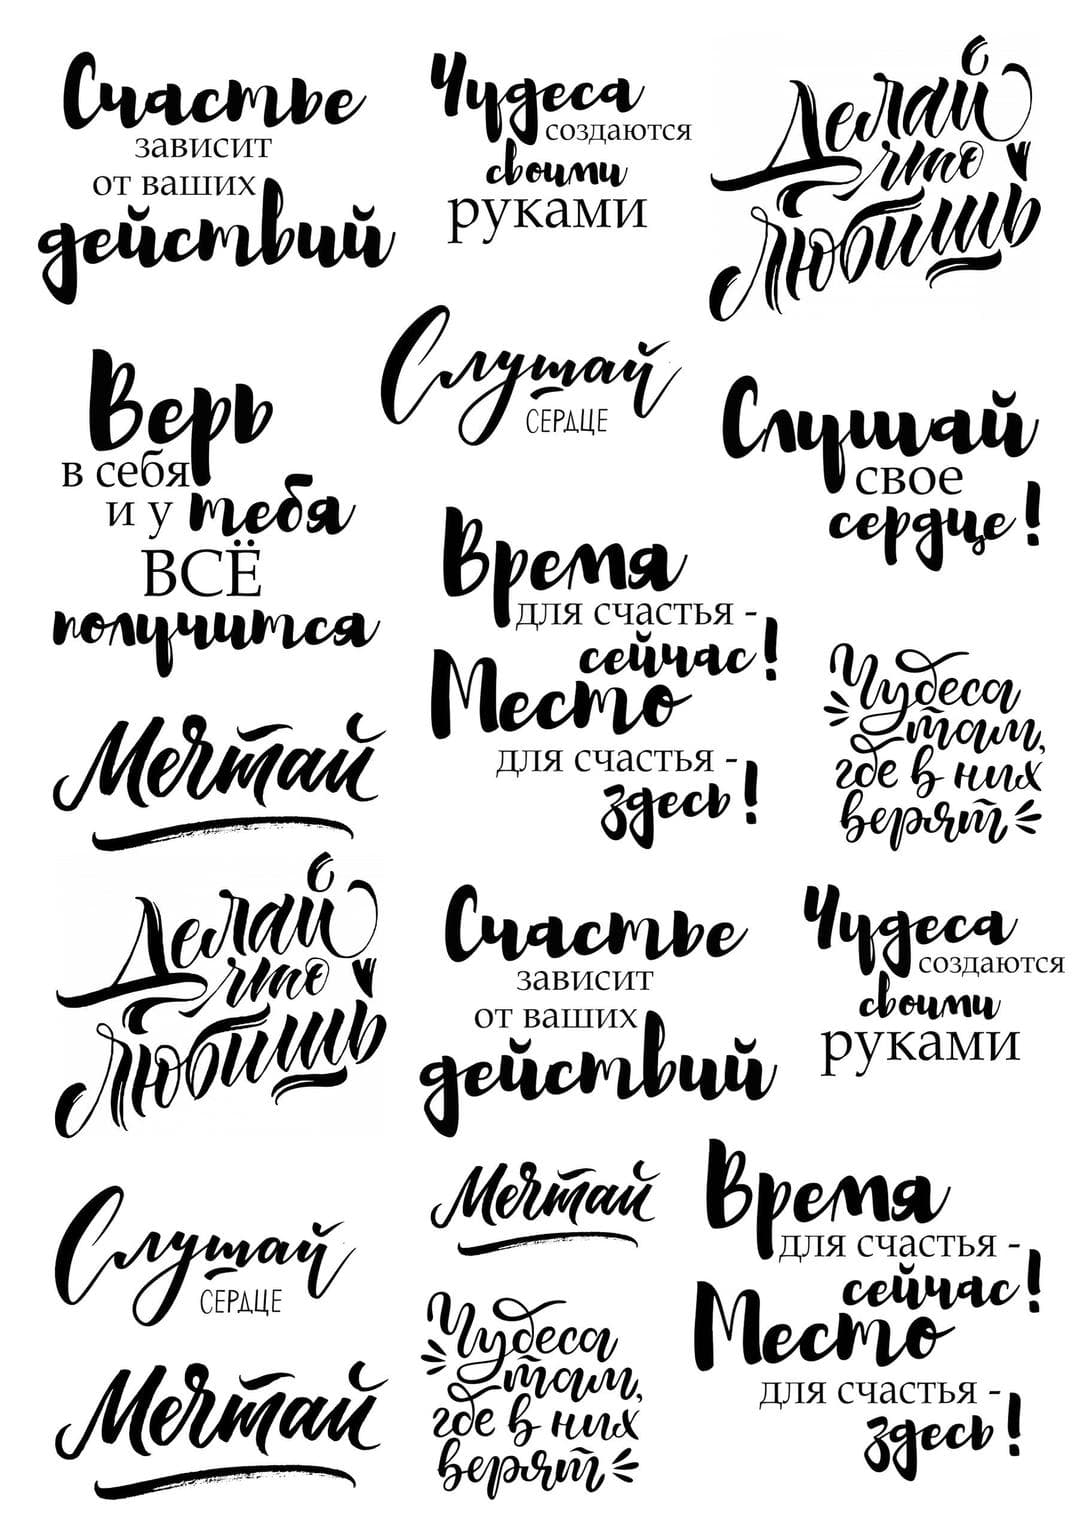 Счастье
зависит
от ваших
действий
Чудеса
создаются
своими
руками
Делай
что
любишь
Слушай
СЕРДЦЕ
Верь
в себя
и у тебя
ВСЁ
получится
Слушай
свое
сердце!
Время
для счастья -
сейчас!
Место
для счастья -
здесь!
Мечтай
Чудеса
там,
где в них
верят
Делай
что
любишь
Счастье
зависит
от ваших
действий
Чудеса
создаются
своими
руками
Слушай
СЕРДЦЕ
Мечтай
Время
для счастья -
сейчас!
Место
для счастья -
здесь!
Мечтай
Чудеса
там,
где в них
верят